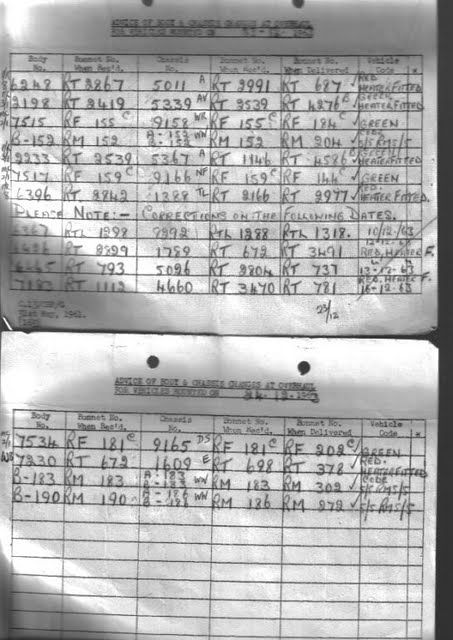 ADVICE OF BODY & CHASSIS CHANGES AT OVERHAUL
FOR VEHICLES MOUNTED ON 12 1963
Body No. Bonnet No. When Rec'd. Chassis No. Bonnet No. When Rec'd. Bonnet No. When Delivered Vehicle Code *
6248 RT 2867 5011 A RT 2991 RT 687 ✓ RED. HEATER FITTED
2198 RT 2419 5339 AV RT 2539 RT 4276 ✓ GREEN HEATER FITTED
7515 RF 155 C 9158 WR RF 155 C RF 184 C ✓ GREEN
B-152 RM 152 A-152 B-152 WN RM 152 RM 204 ✓ S/S RM5/5
2233 RT 2539 5367 A RT 1146 RT 4586 ✓ GREEN HEATER FITTED
7517 RF 159 C 9166 NF RF 159 C RF 144 C ✓ GREEN
6396 RT 2842 1388 TL RT 2166 RT 2977 ✓ RED. HEATER FITTED.
PLEASE NOTE:- CORRECTIONS ON THE FOLLOWING DATES.
RTL 1298 RTL 1288 RTL 1318. 10/12/63
RT 2829 1789 RT 672 RT 3491 12-12-63 RED, HEATER F.
RT 793 5026 RT 2804 RT 737 13-12-63
7187 RT 1112 4660 RT 3470 RT 781 RED, HEATER F. 16-12-63
31st May, 1961.
23/12
ADVICE OF BODY & CHASSIS CHANGES AT OVERHAUL
FOR VEHICLES MOUNTED ON 24. 12. 1963
Body No. Bonnet No. When Rec'd. Chassis No. Bonnet No. When Rec'd. Bonnet No. When Delivered Vehicle Code *
7534 RF 181 C 9165 DS RF 181 C RF 202 C ✓ GREEN
7230 RT 672 1609 E RT 698 RT 378 ✓ RED. HEATER FITTED
B-183 RM 183 A-183 B-183 WN RM 183 RM 302 ✓ S/S RM5/5
B-190 RM 190 A-186 B-188 WN RM 186 RM 272 ✓ S/S RM5/5